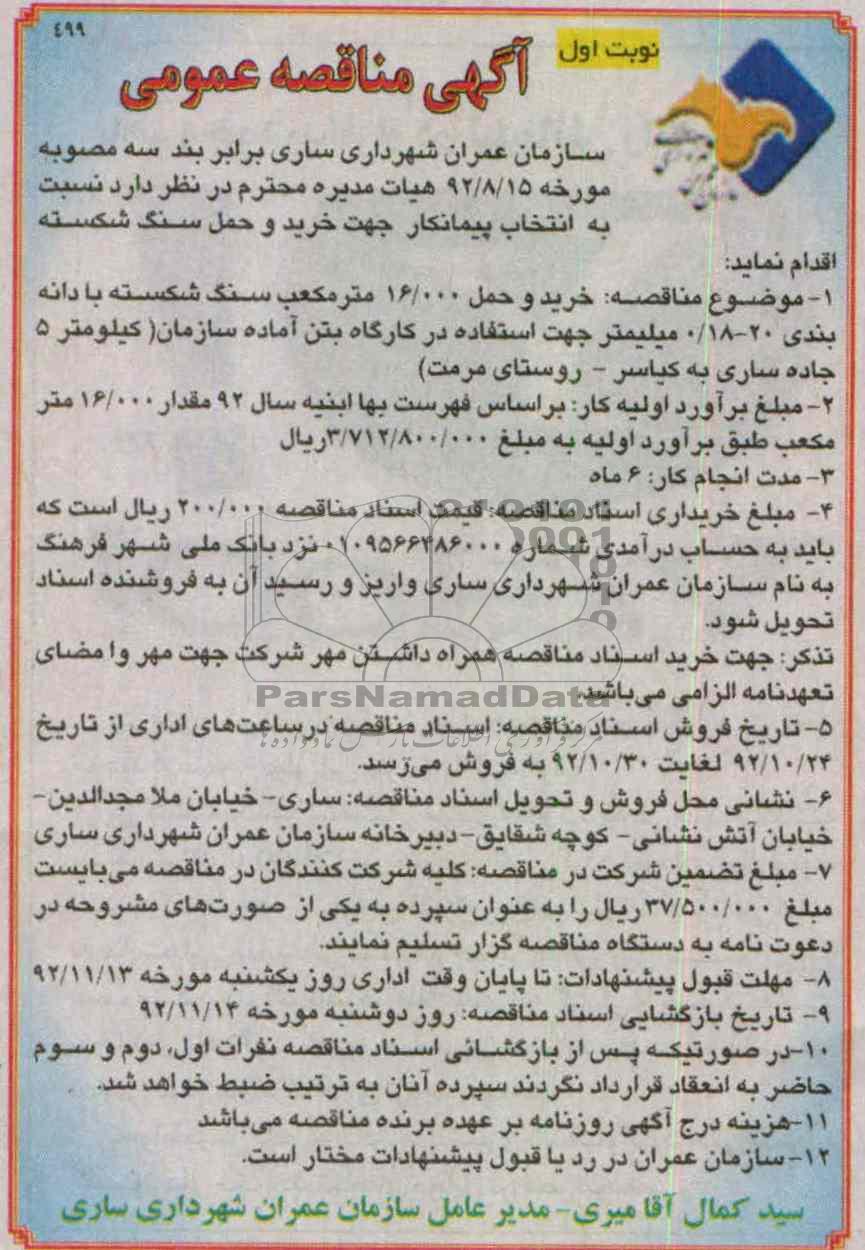 ۴۹۹
نوبت اول
آگهی مناقصه عمومی
سازمان عمران شهرداری ساری برابر بند سه مصوبه
مورخه ۹۲/۸/۱۵ هیات مدیره محترم در نظر دارد نسبت
به انتخاب پیمانکار جهت خرید و حمل سنگ شکسته
اقدام نماید:
۱- موضوع مناقصه: خرید و حمل ۱۶/۰۰۰ مترمکعب سنگ شکسته با دانه
بندی ۲۰-۰/۱۸ میلیمتر جهت استفاده در کارگاه بتن آماده سازمان( کیلومتر ۵
جاده ساری به کیاسر - روستای مرمت)
۲- مبلغ برآورد اولیه کار: براساس فهرست بها ابنیه سال ۹۲ مقدار ۱۶/۰۰۰ متر
مکعب طبق برآورد اولیه به مبلغ ۳/۷۱۲/۸۰۰/۰۰۰ریال
۳- مدت انجام کار: ۶ ماه
۴- مبلغ خریداری اسناد مناقصه: قیمت اسناد مناقصه ۲۰۰/۰۰۰ ریال است که
باید به حساب درآمدی شماره ۰۱۰۹۵۶۶۴۸۶۰۰۰ نزد بانک ملی شهر فرهنگ
به نام سازمان عمران شهرداری ساری واریز و رسید آن به فروشنده اسناد
تحویل شود.
تذکر: جهت خرید اسناد مناقصه همراه داشتن مهر شرکت جهت مهر وا مضای
تعهدنامه الزامی می‌باشد.
ParsNamadData
۵- تاریخ فروش اسناد مناقصه: اسناد مناقصه درساعت‌های اداری از تاریخ
۹۲/۱۰/۲۴ لغایت ۹۲/۱۰/۳۰ به فروش می‌رسد.
۶- نشانی محل فروش و تحویل اسناد مناقصه: ساری- خیابان ملا مجدالدین-
خیابان آتش نشانی- کوچه شقایق-دبیرخانه سازمان عمران شهرداری ساری
۷- مبلغ تضمین شرکت در مناقصه: کلیه شرکت کنندگان در مناقصه می‌بایست
مبلغ ۳۷/۵۰۰/۰۰۰ ریال را به عنوان سپرده به یکی از صورت‌های مشروحه در
دعوت نامه به دستگاه مناقصه گزار تسلیم نمایند.
۸- مهلت قبول پیشنهادات: تا پایان وقت اداری روز یکشنبه مورخه ۹۲/۱۱/۱۳
۹- تاریخ بازگشایی اسناد مناقصه: روز دوشنبه مورخه ۹۲/۱۱/۱۴
۱۰-در صورتیکه پس از بازگشائی اسناد مناقصه نفرات اول، دوم و سوم
حاضر به انعقاد قرارداد نگردند سپرده آنان به ترتیب ضبط خواهد شد.
۱۱-هزینه درج آگهی روزنامه بر عهده برنده مناقصه می‌باشد
۱۲-سازمان عمران در رد یا قبول پیشنهادات مختار است.
سید کمال آقا میری- مدیر عامل سازمان عمران شهرداری ساری